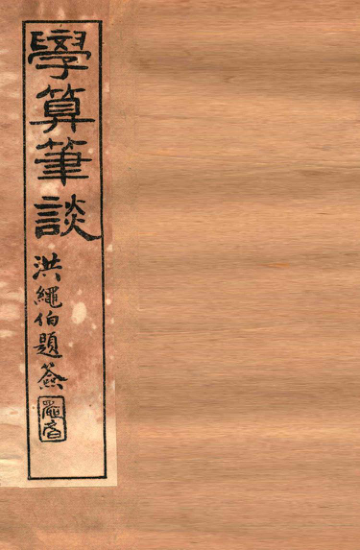 學算筆談
洪繩伯題簽